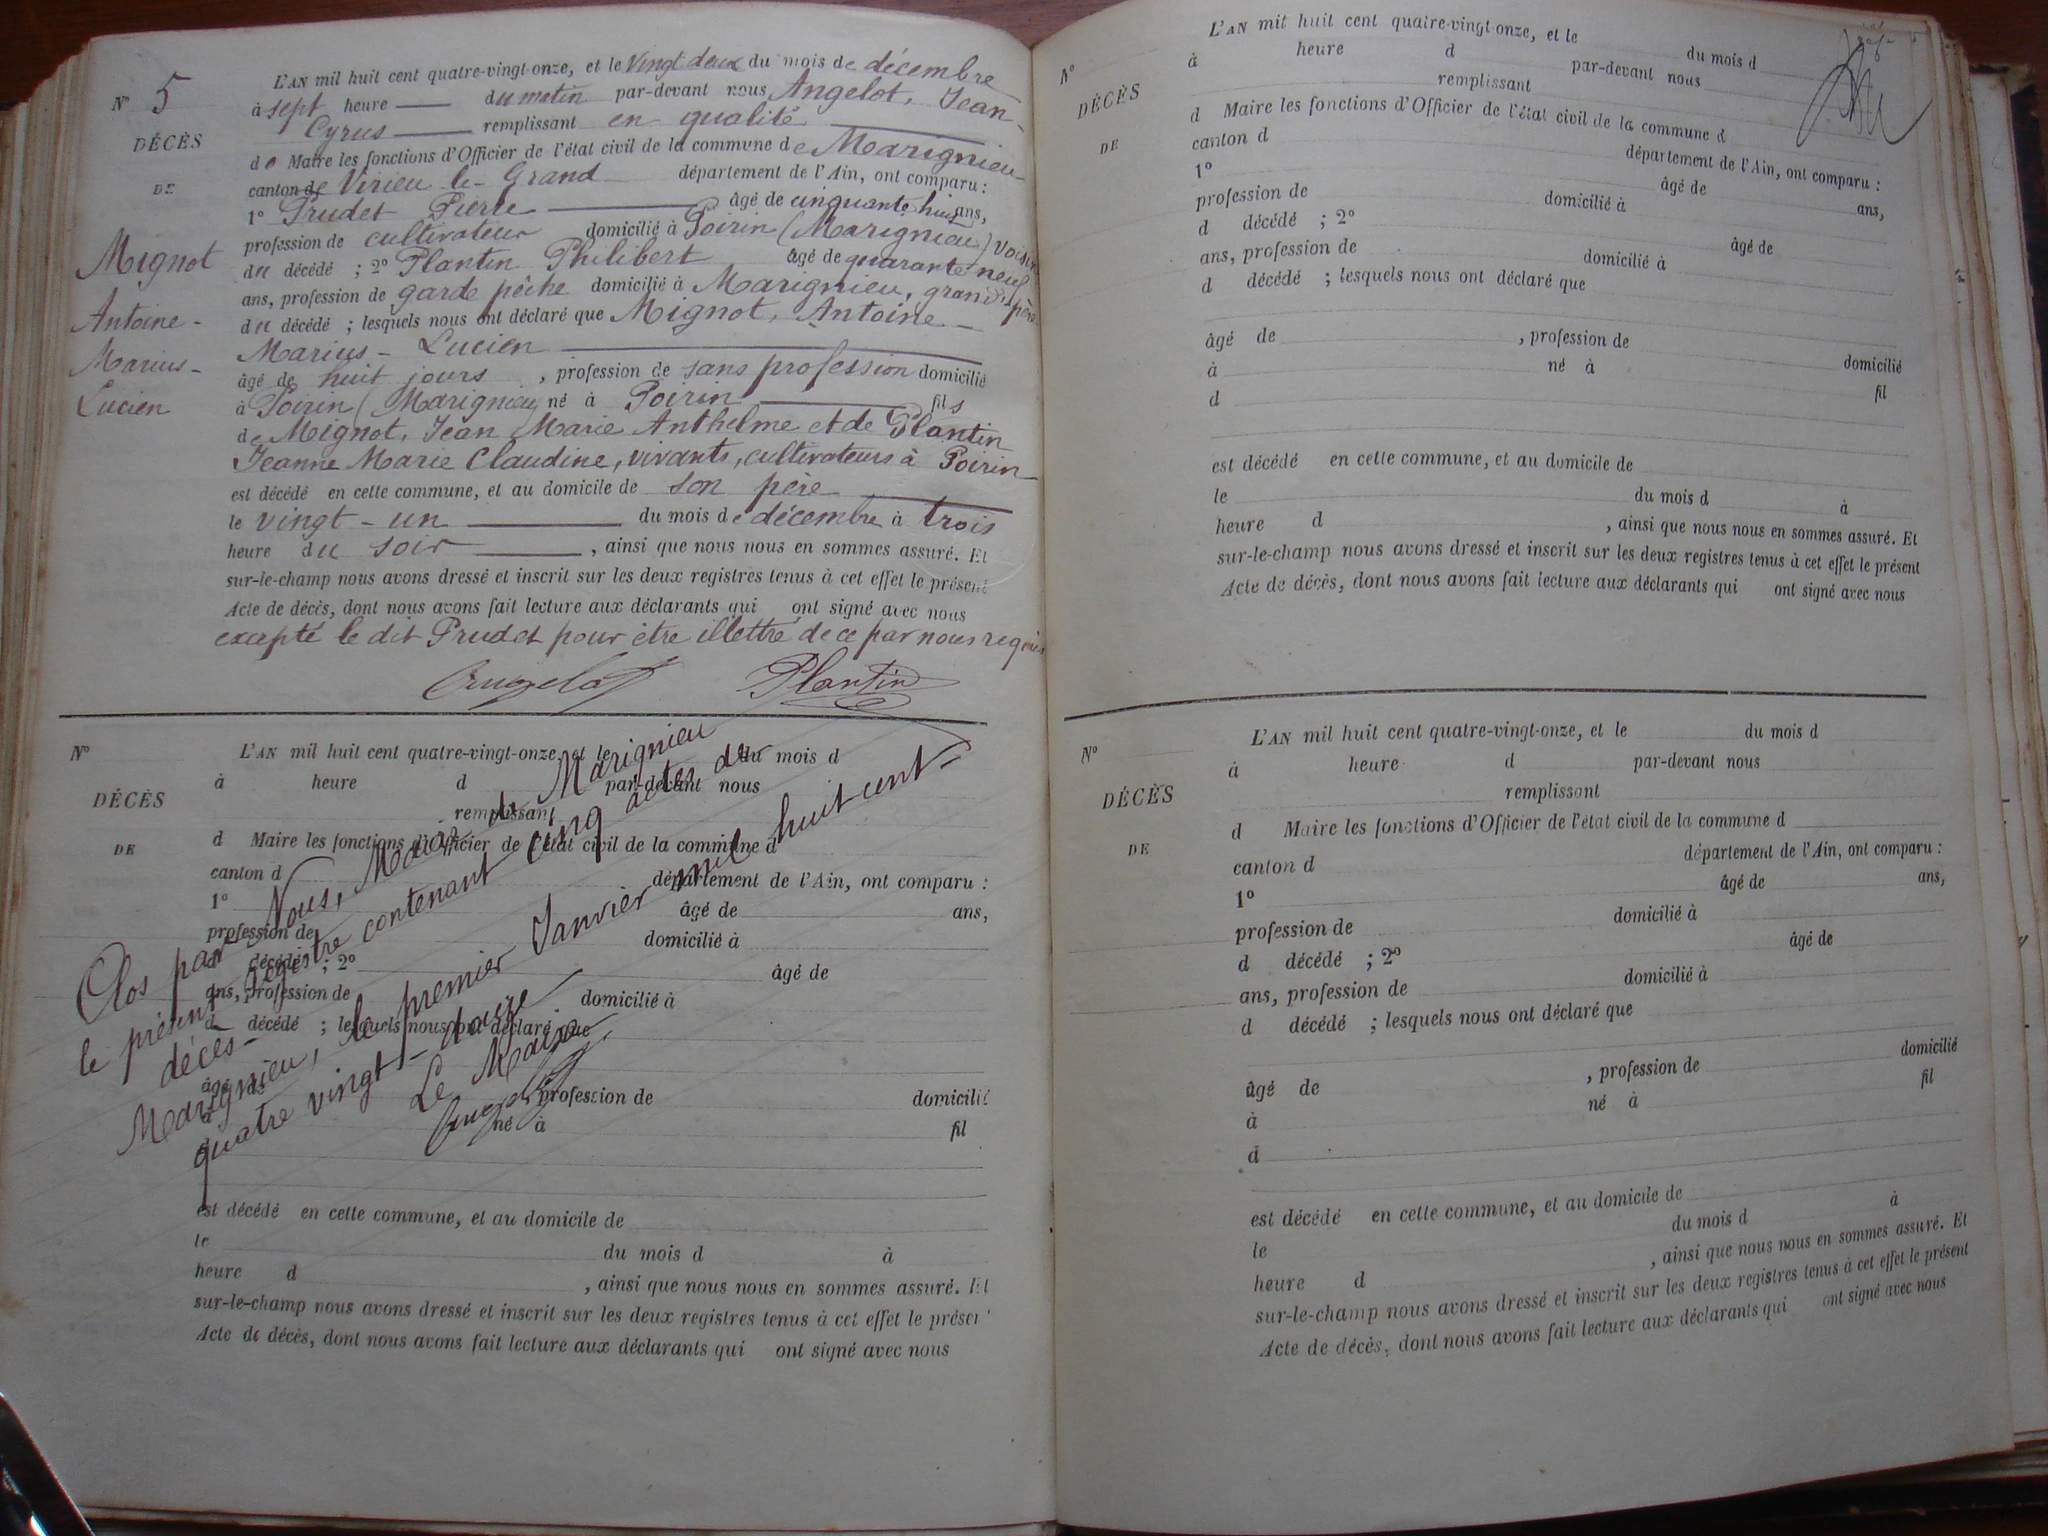 N° 5
DÉCÈS
DE
Mignot
Antoine-
Marius-
Lucien
L'AN mil huit cent quatre-vingt-onze, et le vingt deux du mois de décembre
à sept heure du matin par-devant nous Angelot, Jean-
Cyrus remplissant en qualité
de Maire les fonctions d'Officier de l'état civil de la commune de Marignieu
canton de Virieu-le-Grand département de l'Ain, ont comparu :
1° Prudet Pierre âgé de cinquante huit ans,
profession de cultivateur domicilié à Poirin (Marignieu) voisin
du décédé ; 2° Plantin Philibert âgé de quarante neuf
ans, profession de garde pêche domicilié à Marignieu, grand père
du décédé ; lesquels nous ont déclaré que Mignot, Antoine-
Marius-Lucien
âgé de huit jours , profession de sans profession domicilié
à Poirin (Marignieu) né à Poirin fils
de Mignot, Jean Marie Anthelme et de Plantin
Jeanne Marie Claudine, vivants, cultivateurs à Poirin
est décédé en cette commune, et au domicile de son père
le vingt-un du mois de décembre à trois
heure du soir , ainsi que nous nous en sommes assuré. Et
sur-le-champ nous avons dressé et inscrit sur les deux registres tenus à cet effet le présent
Acte de décès, dont nous avons fait lecture aux déclarants qui ont signé avec nous
excepté le dit Prudet pour être illettré de ce par nous requis
Angelot Plantin
N°
DÉCÈS
DE
L'AN mil huit cent quatre-vingt-onze, et le du mois d
à heure d par-devant nous
remplissant
d Maire les fonctions d'Officier de l'état civil de la commune d
canton d département de l'Ain, ont comparu :
1° âgé de ans,
profession de domicilié à
d décédé ; 2° âgé de
ans, profession de domicilié à
d décédé ; lesquels nous ont déclaré que
âgé de , profession de domicilié
à né à fil
d
est décédé en cette commune, et au domicile de
le du mois d à
heure d , ainsi que nous nous en sommes assuré. Et
sur-le-champ nous avons dressé et inscrit sur les deux registres tenus à cet effet le présent
Acte de décès, dont nous avons fait lecture aux déclarants qui ont signé avec nous
Clos par Nous, Maire de Marignieu
le présent registre contenant cinq actes de
décès-
Marignieu, le premier Janvier mil huit cent-
quatre vingt-douze
Le Maire
Angelot
N°
DÉCÈS
DE
L'AN mil huit cent quatre-vingt-onze, et le du mois d
à heure d par-devant nous
remplissant
d Maire les fonctions d'Officier de l'état civil de la commune d
canton d département de l'Ain, ont comparu :
1° âgé de ans,
profession de domicilié à
d décédé ; 2° âgé de
ans, profession de domicilié à
d décédé ; lesquels nous ont déclaré que
âgé de , profession de domicilié
à né à fil
d
est décédé en cette commune, et au domicile de
le du mois d à
heure d , ainsi que nous nous en sommes assuré. Et
sur-le-champ nous avons dressé et inscrit sur les deux registres tenus à cet effet le présent
Acte de décès, dont nous avons fait lecture aux déclarants qui ont signé avec nous
N°
DÉCÈS
DE
L'AN mil huit cent quatre-vingt-onze, et le du mois d
à heure d par-devant nous
remplissant
d Maire les fonctions d'Officier de l'état civil de la commune d
canton d département de l'Ain, ont comparu :
1° âgé de ans,
profession de domicilié à
d décédé ; 2° âgé de
ans, profession de domicilié à
d décédé ; lesquels nous ont déclaré que
âgé de , profession de domicilié
à né à fil
d
est décédé en cette commune, et au domicile de
le du mois d à
heure d , ainsi que nous nous en sommes assuré. Et
sur-le-champ nous avons dressé et inscrit sur les deux registres tenus à cet effet le présent
Acte de décès, dont nous avons fait lecture aux déclarants qui ont signé avec nous